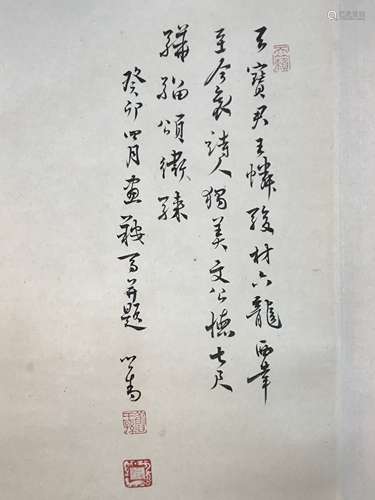 天寶君王憐駿材六龍西幸
至今哀詩人獨美文公德七尺
驊騮頌衛騋
癸卯四月畫鞍馬并題 心畬